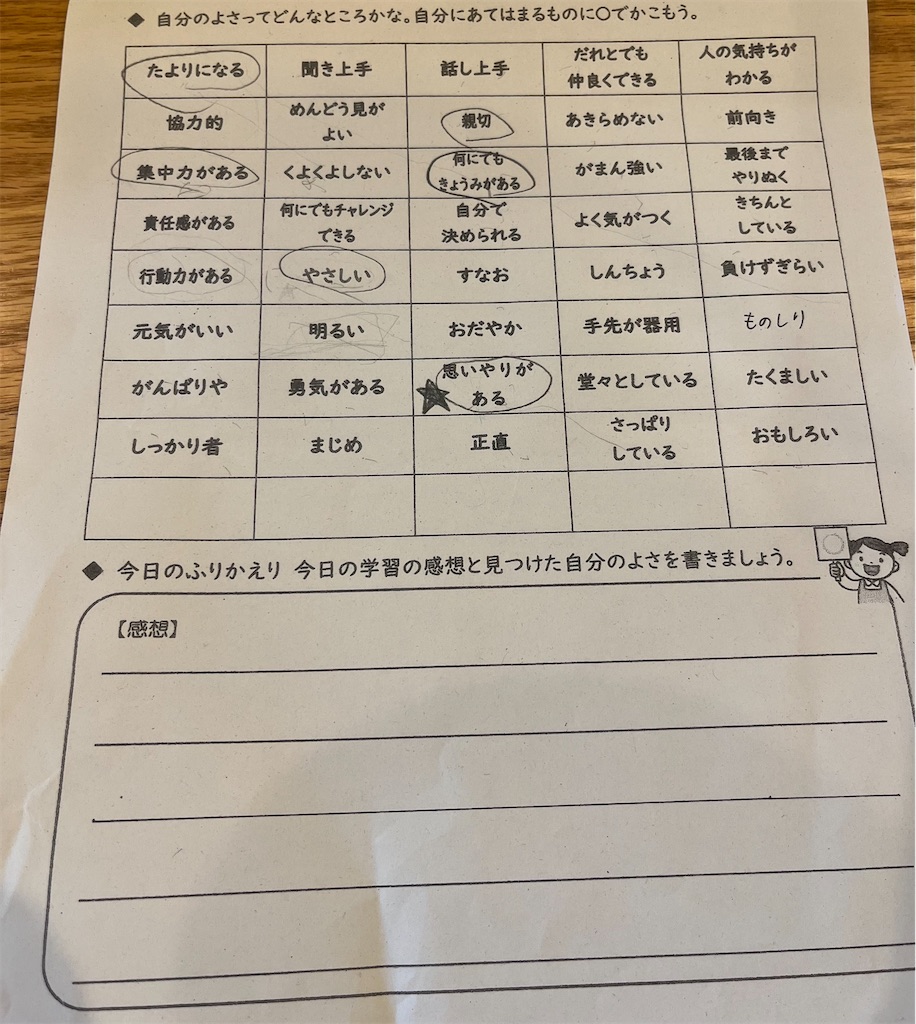 ◆ 自分のよさってどんなところかな。自分にあてはまるものに○でかこもう。
たよりになる 聞き上手 話し上手 だれとでも仲良くできる 人の気持ちがわかる
協力的 めんどう見がよい 親切 あきらめない 前向き
集中力がある くよくよしない 何にでもきょうみがある がまん強い 最後までやりぬく
責任感がある 何にでもチャレンジできる 自分で決められる よく気がつく きちんとしている
行動力がある やさしい すなお しんちょう 負けずぎらい
元気がいい 明るい おだやか 手先が器用 ものしり
がんばりや 勇気がある 思いやりがある 堂々としている たくましい
しっかり者 まじめ 正直 さっぱりしている おもしろい
◆ 今日のふりかえり 今日の学習の感想と見つけた自分のよさを書きましょう。
【感想】